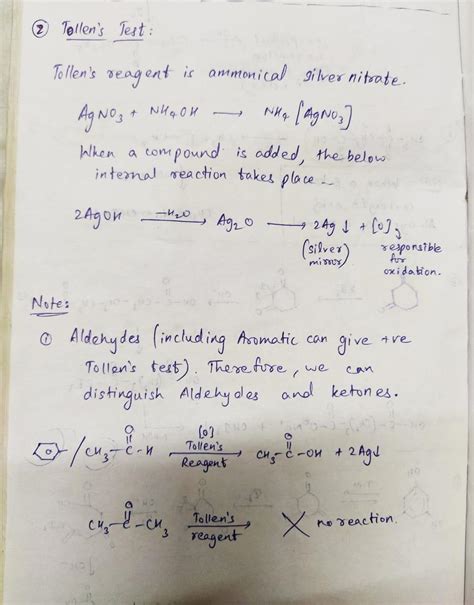 ② Tollen's Test:
Tollen's reagent is ammonical silver nitrate.
AgNO3 + NH4OH ⟶ NH4 [AgNO3]
When a compound is added, the below
internal reaction takes place -
2AgOH —-H2O⟶ Ag2O ⟶ 2Ag↓ + [O],
(silver mirror) responsible
for
oxidation.
Note:
① Aldehydes (including Aromatic can give +ve
Tollen's test). Therefore, we can
distinguish Aldehydes and ketones.
/ CH3-C(=O)-H —[O] Tollen's Reagent⟶ CH3-C(=O)-OH + 2Ag↓
CH3-C(=O)-CH3 —Tollen's reagent⟶ X no reaction.